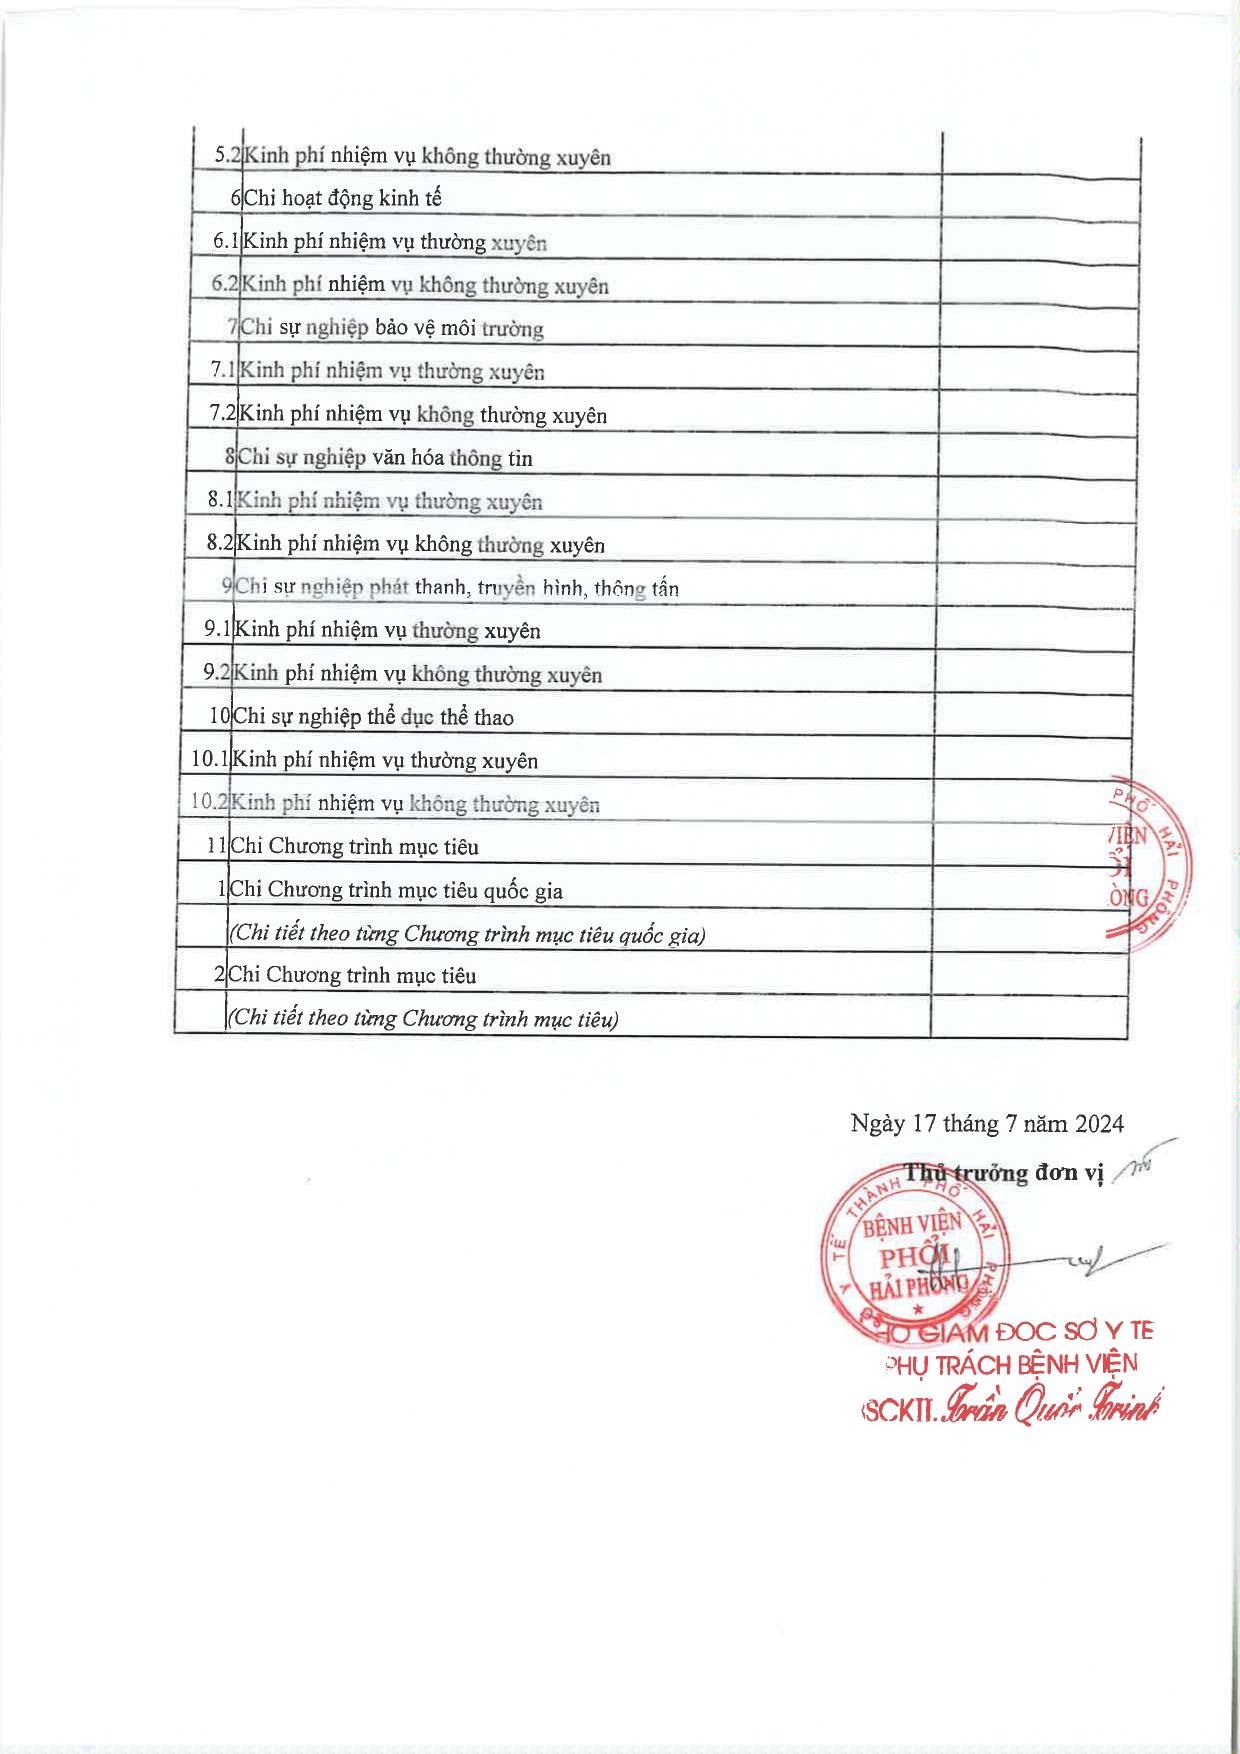 5.2 Kinh phí nhiệm vụ không thường xuyên
6 Chi hoạt động kinh tế
6.1 Kinh phí nhiệm vụ thường xuyên
6.2 Kinh phí nhiệm vụ không thường xuyên
7 Chi sự nghiệp bảo vệ môi trường
7.1 Kinh phí nhiệm vụ thường xuyên
7.2 Kinh phí nhiệm vụ không thường xuyên
8 Chi sự nghiệp văn hóa thông tin
8.1 Kinh phí nhiệm vụ thường xuyên
8.2 Kinh phí nhiệm vụ không thường xuyên
9 Chi sự nghiệp phát thanh, truyền hình, thông tấn
9.1 Kinh phí nhiệm vụ thường xuyên
9.2 Kinh phí nhiệm vụ không thường xuyên
10 Chi sự nghiệp thể dục thể thao
10.1 Kinh phí nhiệm vụ thường xuyên
10.2 Kinh phí nhiệm vụ không thường xuyên
11 Chi Chương trình mục tiêu
1 Chi Chương trình mục tiêu quốc gia
(Chi tiết theo từng Chương trình mục tiêu quốc gia)
2 Chi Chương trình mục tiêu
(Chi tiết theo từng Chương trình mục tiêu)
PHỐ HẢI PHÒNG
VIỆN
ÒNG
Ngày 17 tháng 7 năm 2024
Thủ trưởng đơn vị
Y TẾ THÀNH PHỐ HẢI PHÒNG
BỆNH VIỆN
PHỔI
HẢI PHÒNG
GIÁM ĐỐC SỞ Y TẾ
PHỤ TRÁCH BỆNH VIỆN
SCKII. Trần Quốc Trinh